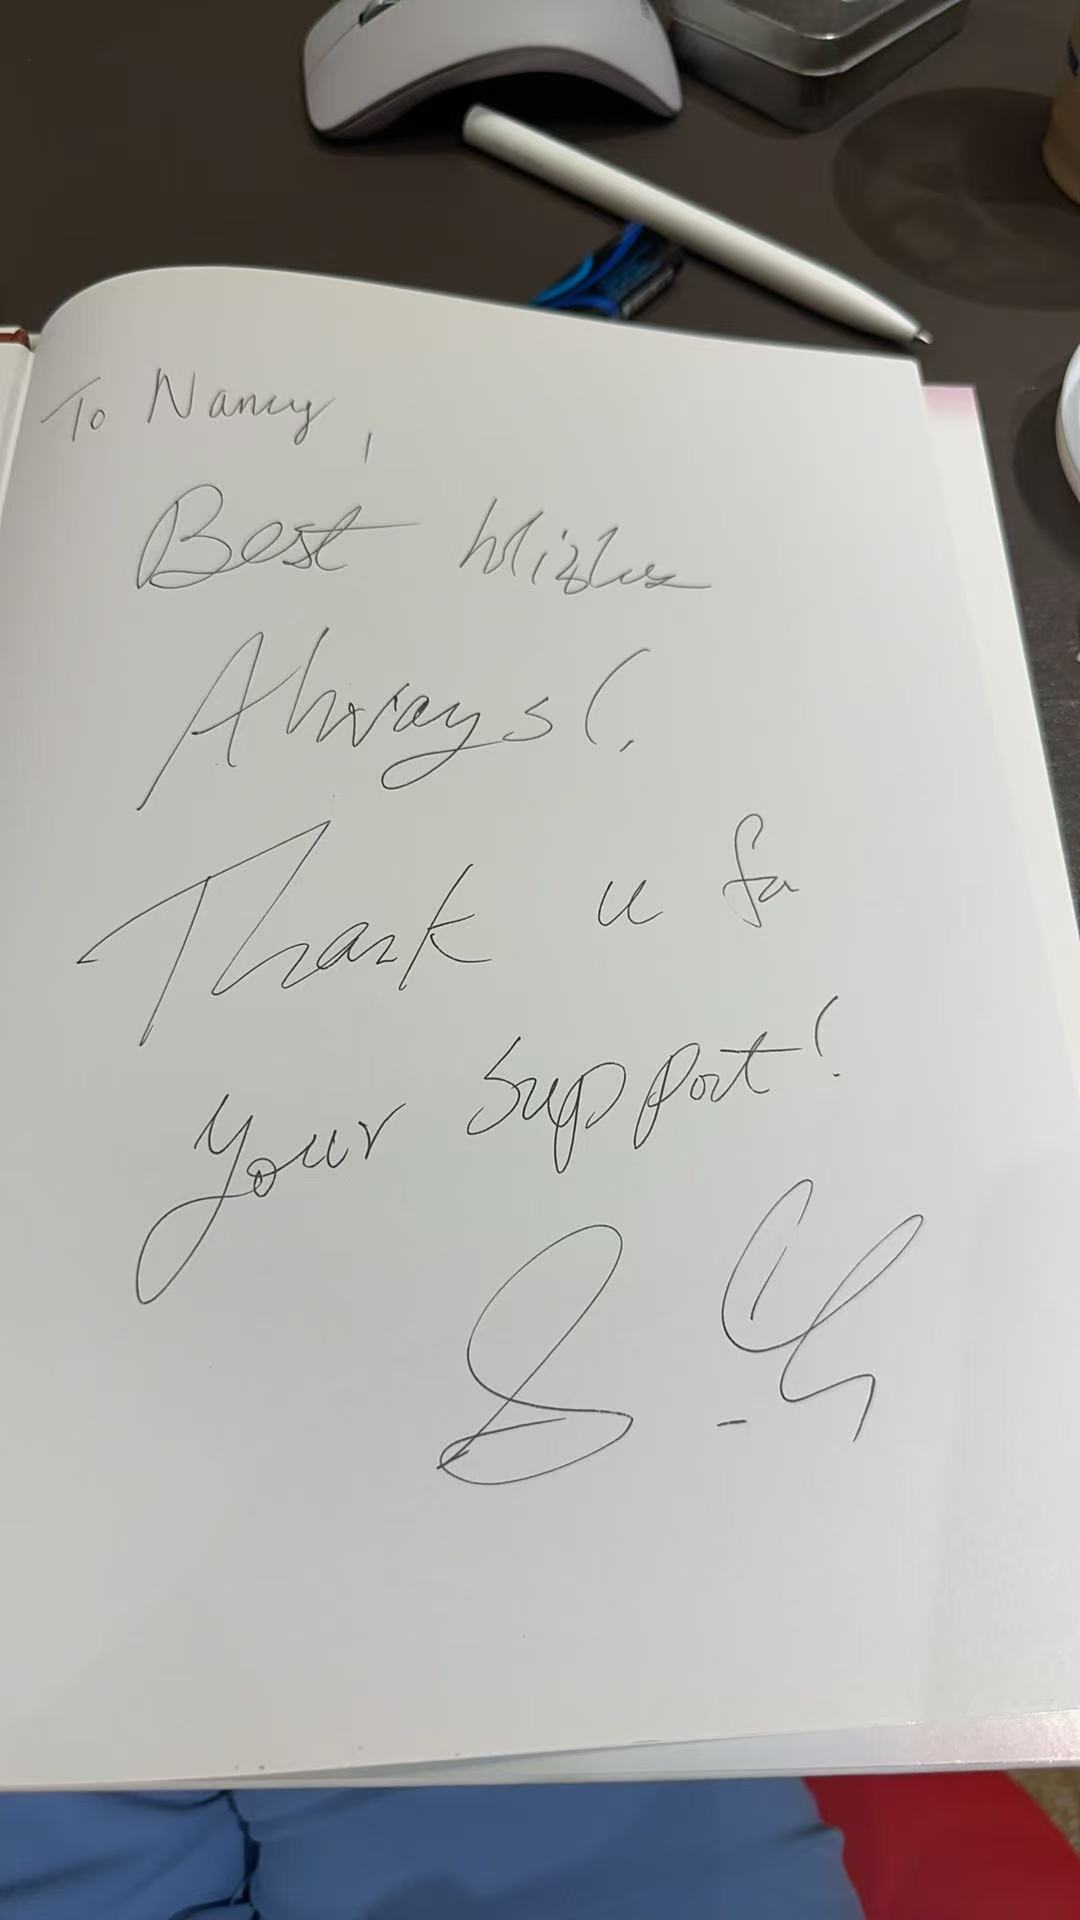 To Nancy,
Best Wishes
Always!
Thank u for
your support!